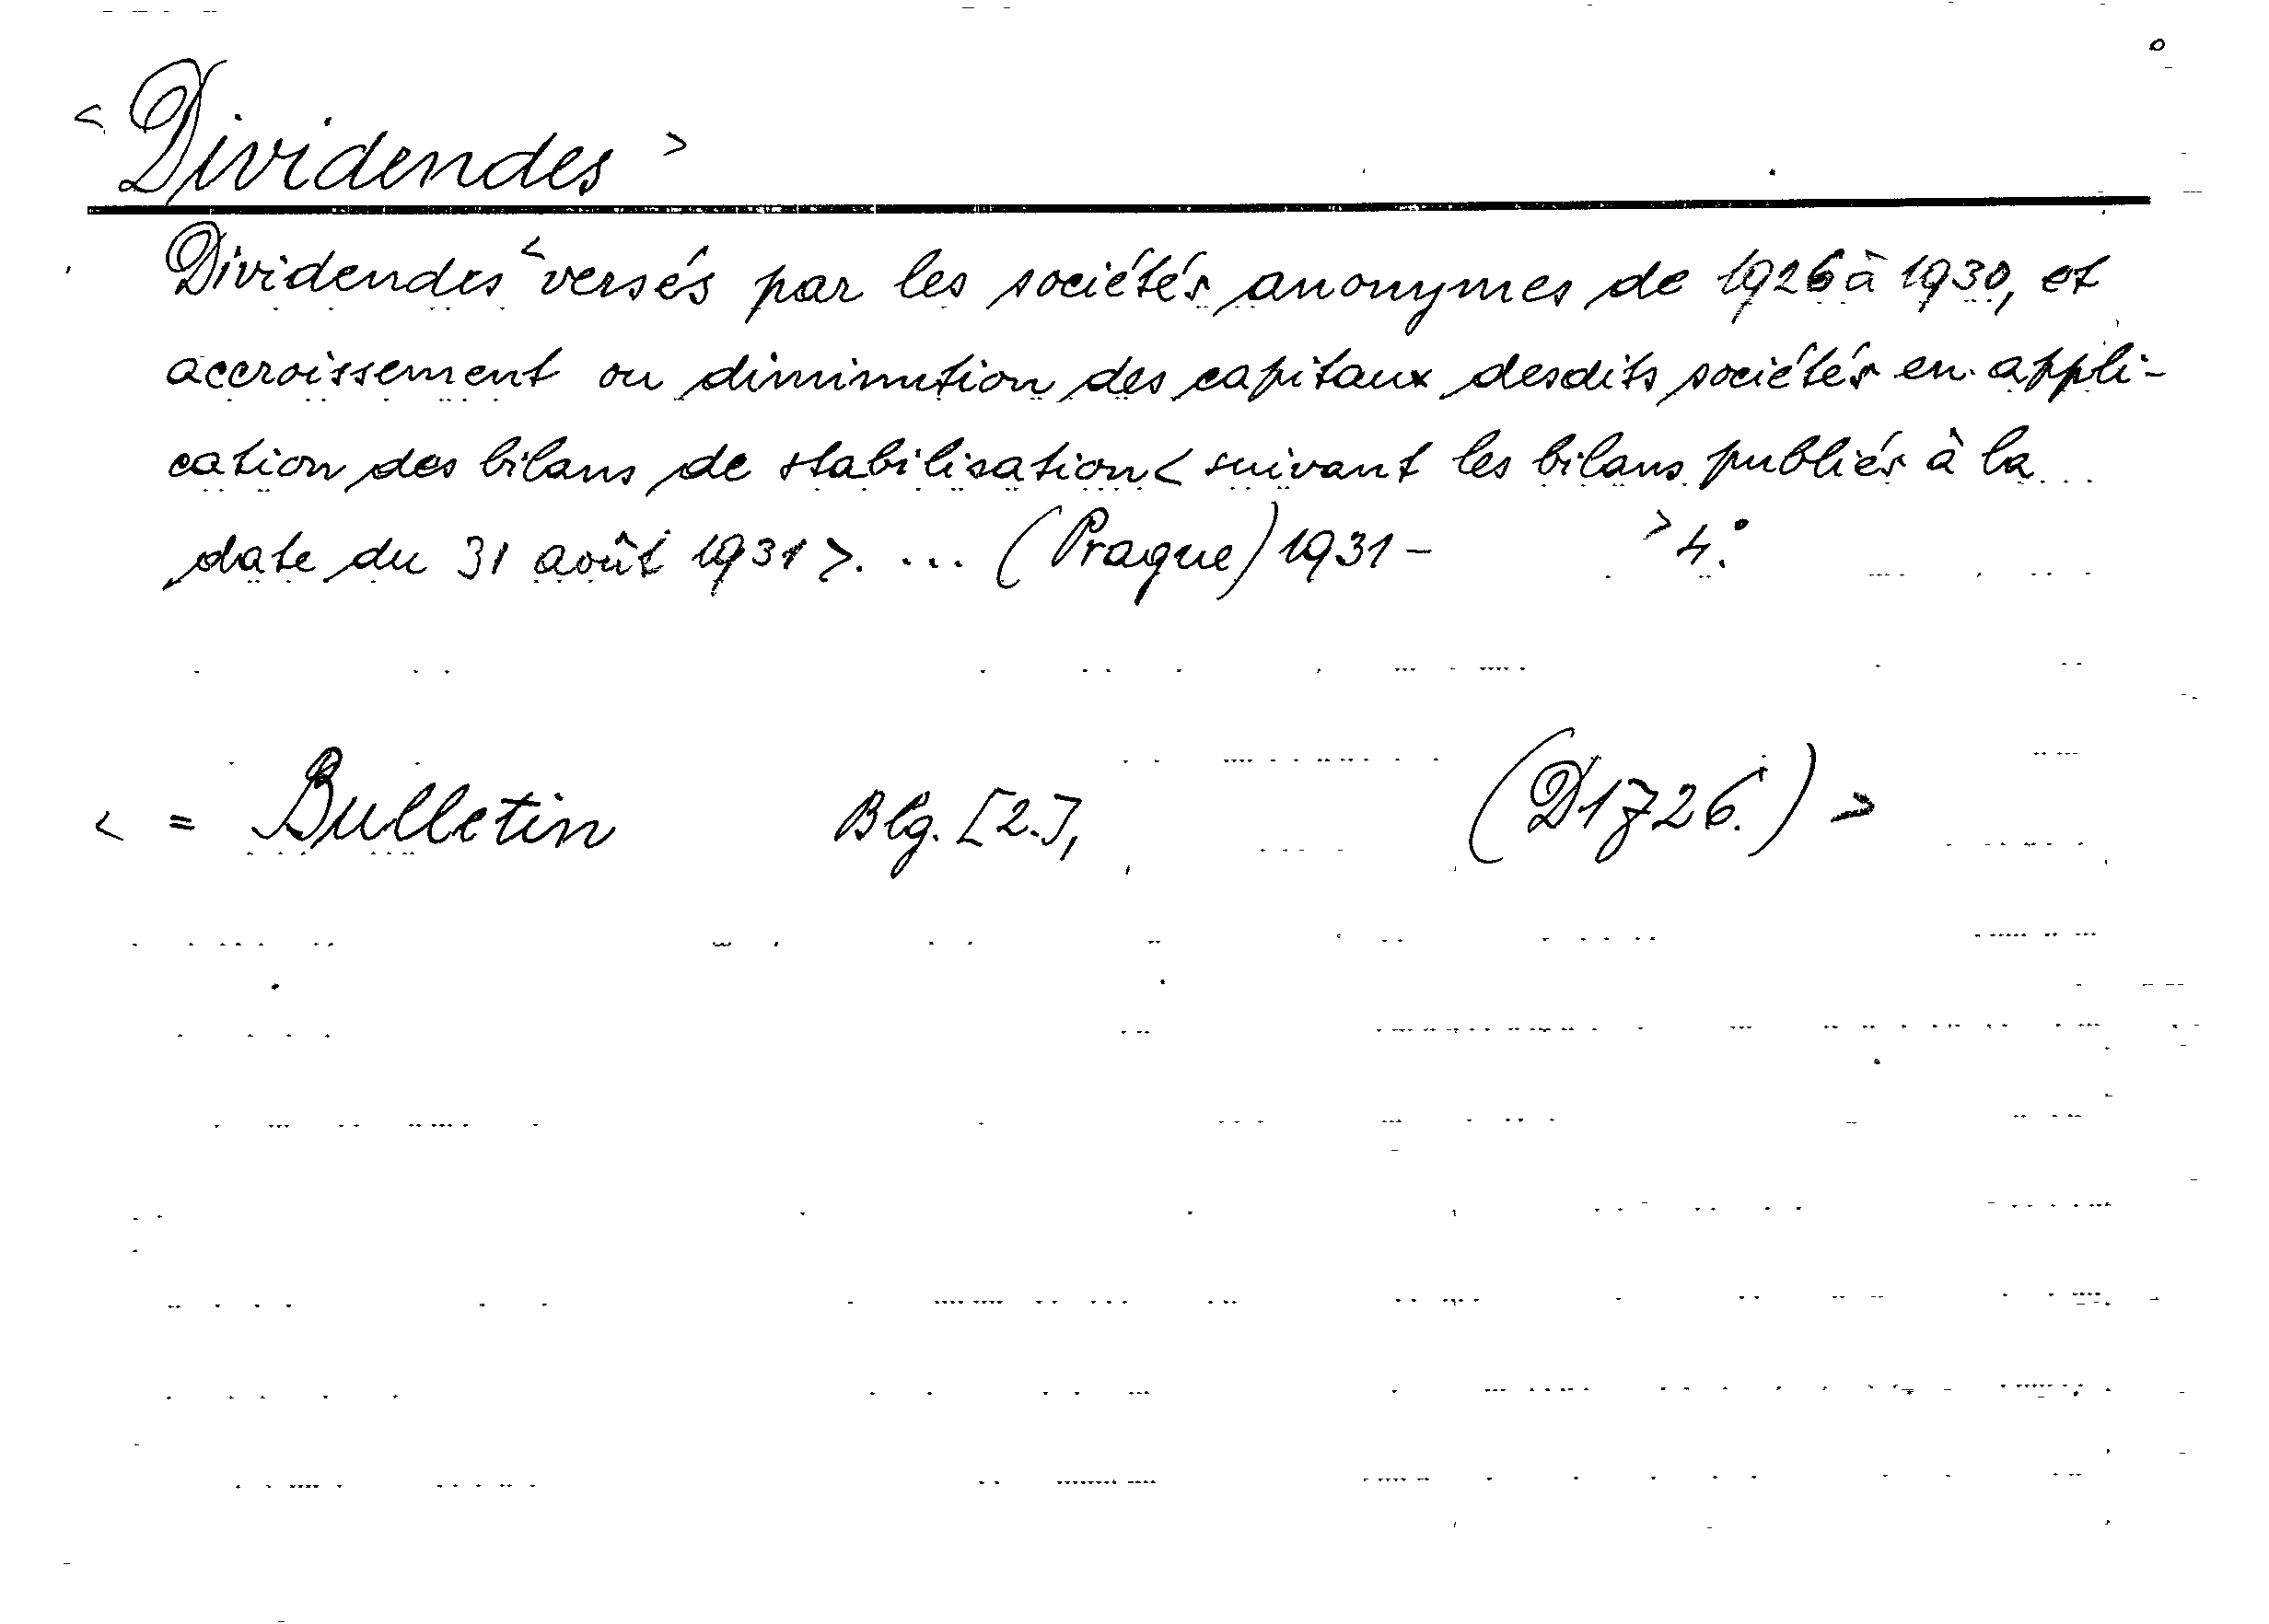 < Dividendes >
Dividendes < versés par les sociétés anonymes de 1926 à 1930, et
accroissement ou diminution des capitaux desdits sociétés en appli-
cation des bilans de stabilisation < suivant les bilans publiés à la
date du 31 août 1931 >. ... (Prague) 1931 - > 4°.
< = Bulletin Blg. [2.], (D1726.) >